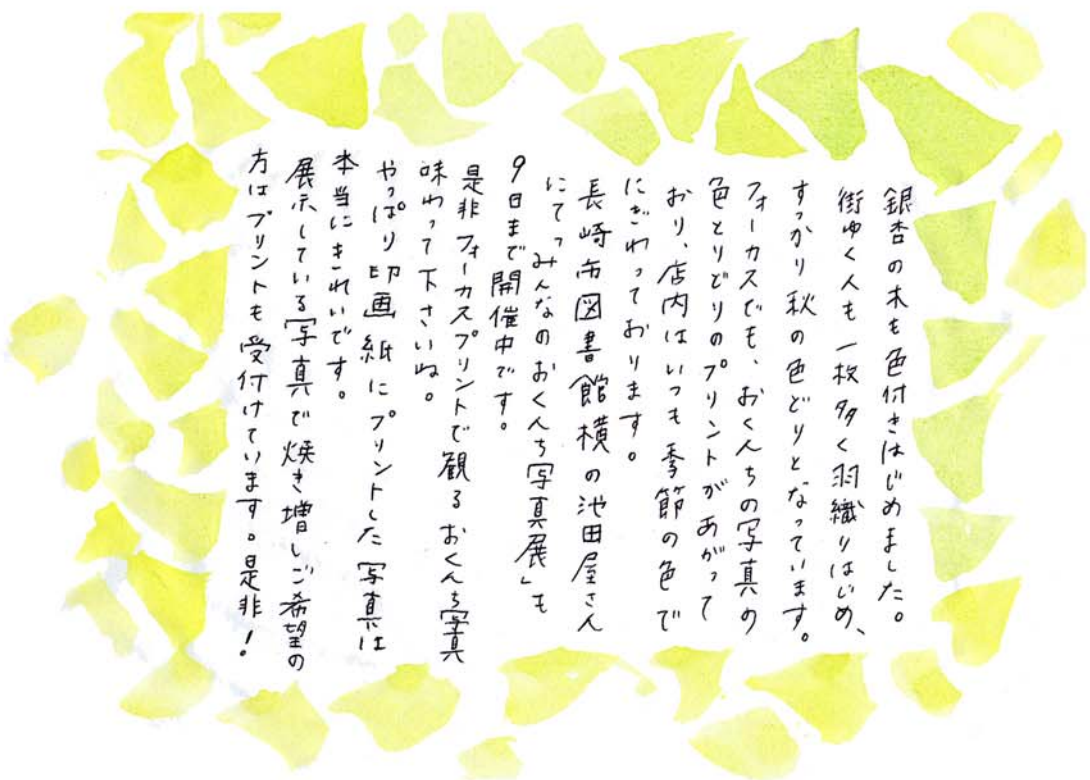 銀杏の木も色付きはじめました。
街ゆく人も一枚多く羽織りはじめ、
すっかり秋の色どりとなっています。
フォーカスでも、おくんちの写真の
色とりどりのプリントがあがって
おり、店内はいつも季節の色で
にぎわっております。
長崎市図書館横の池田屋さん
にて「みんなのおくんち写真展」も
9日まで開催中です。
是非フォーカスプリントで観るおくんち写真
味わって下さいね。
やっぱり印画紙にプリントした写真は
本当にきれいです。
展示している写真で焼き増しご希望の
方はプリントも受付けています。是非!